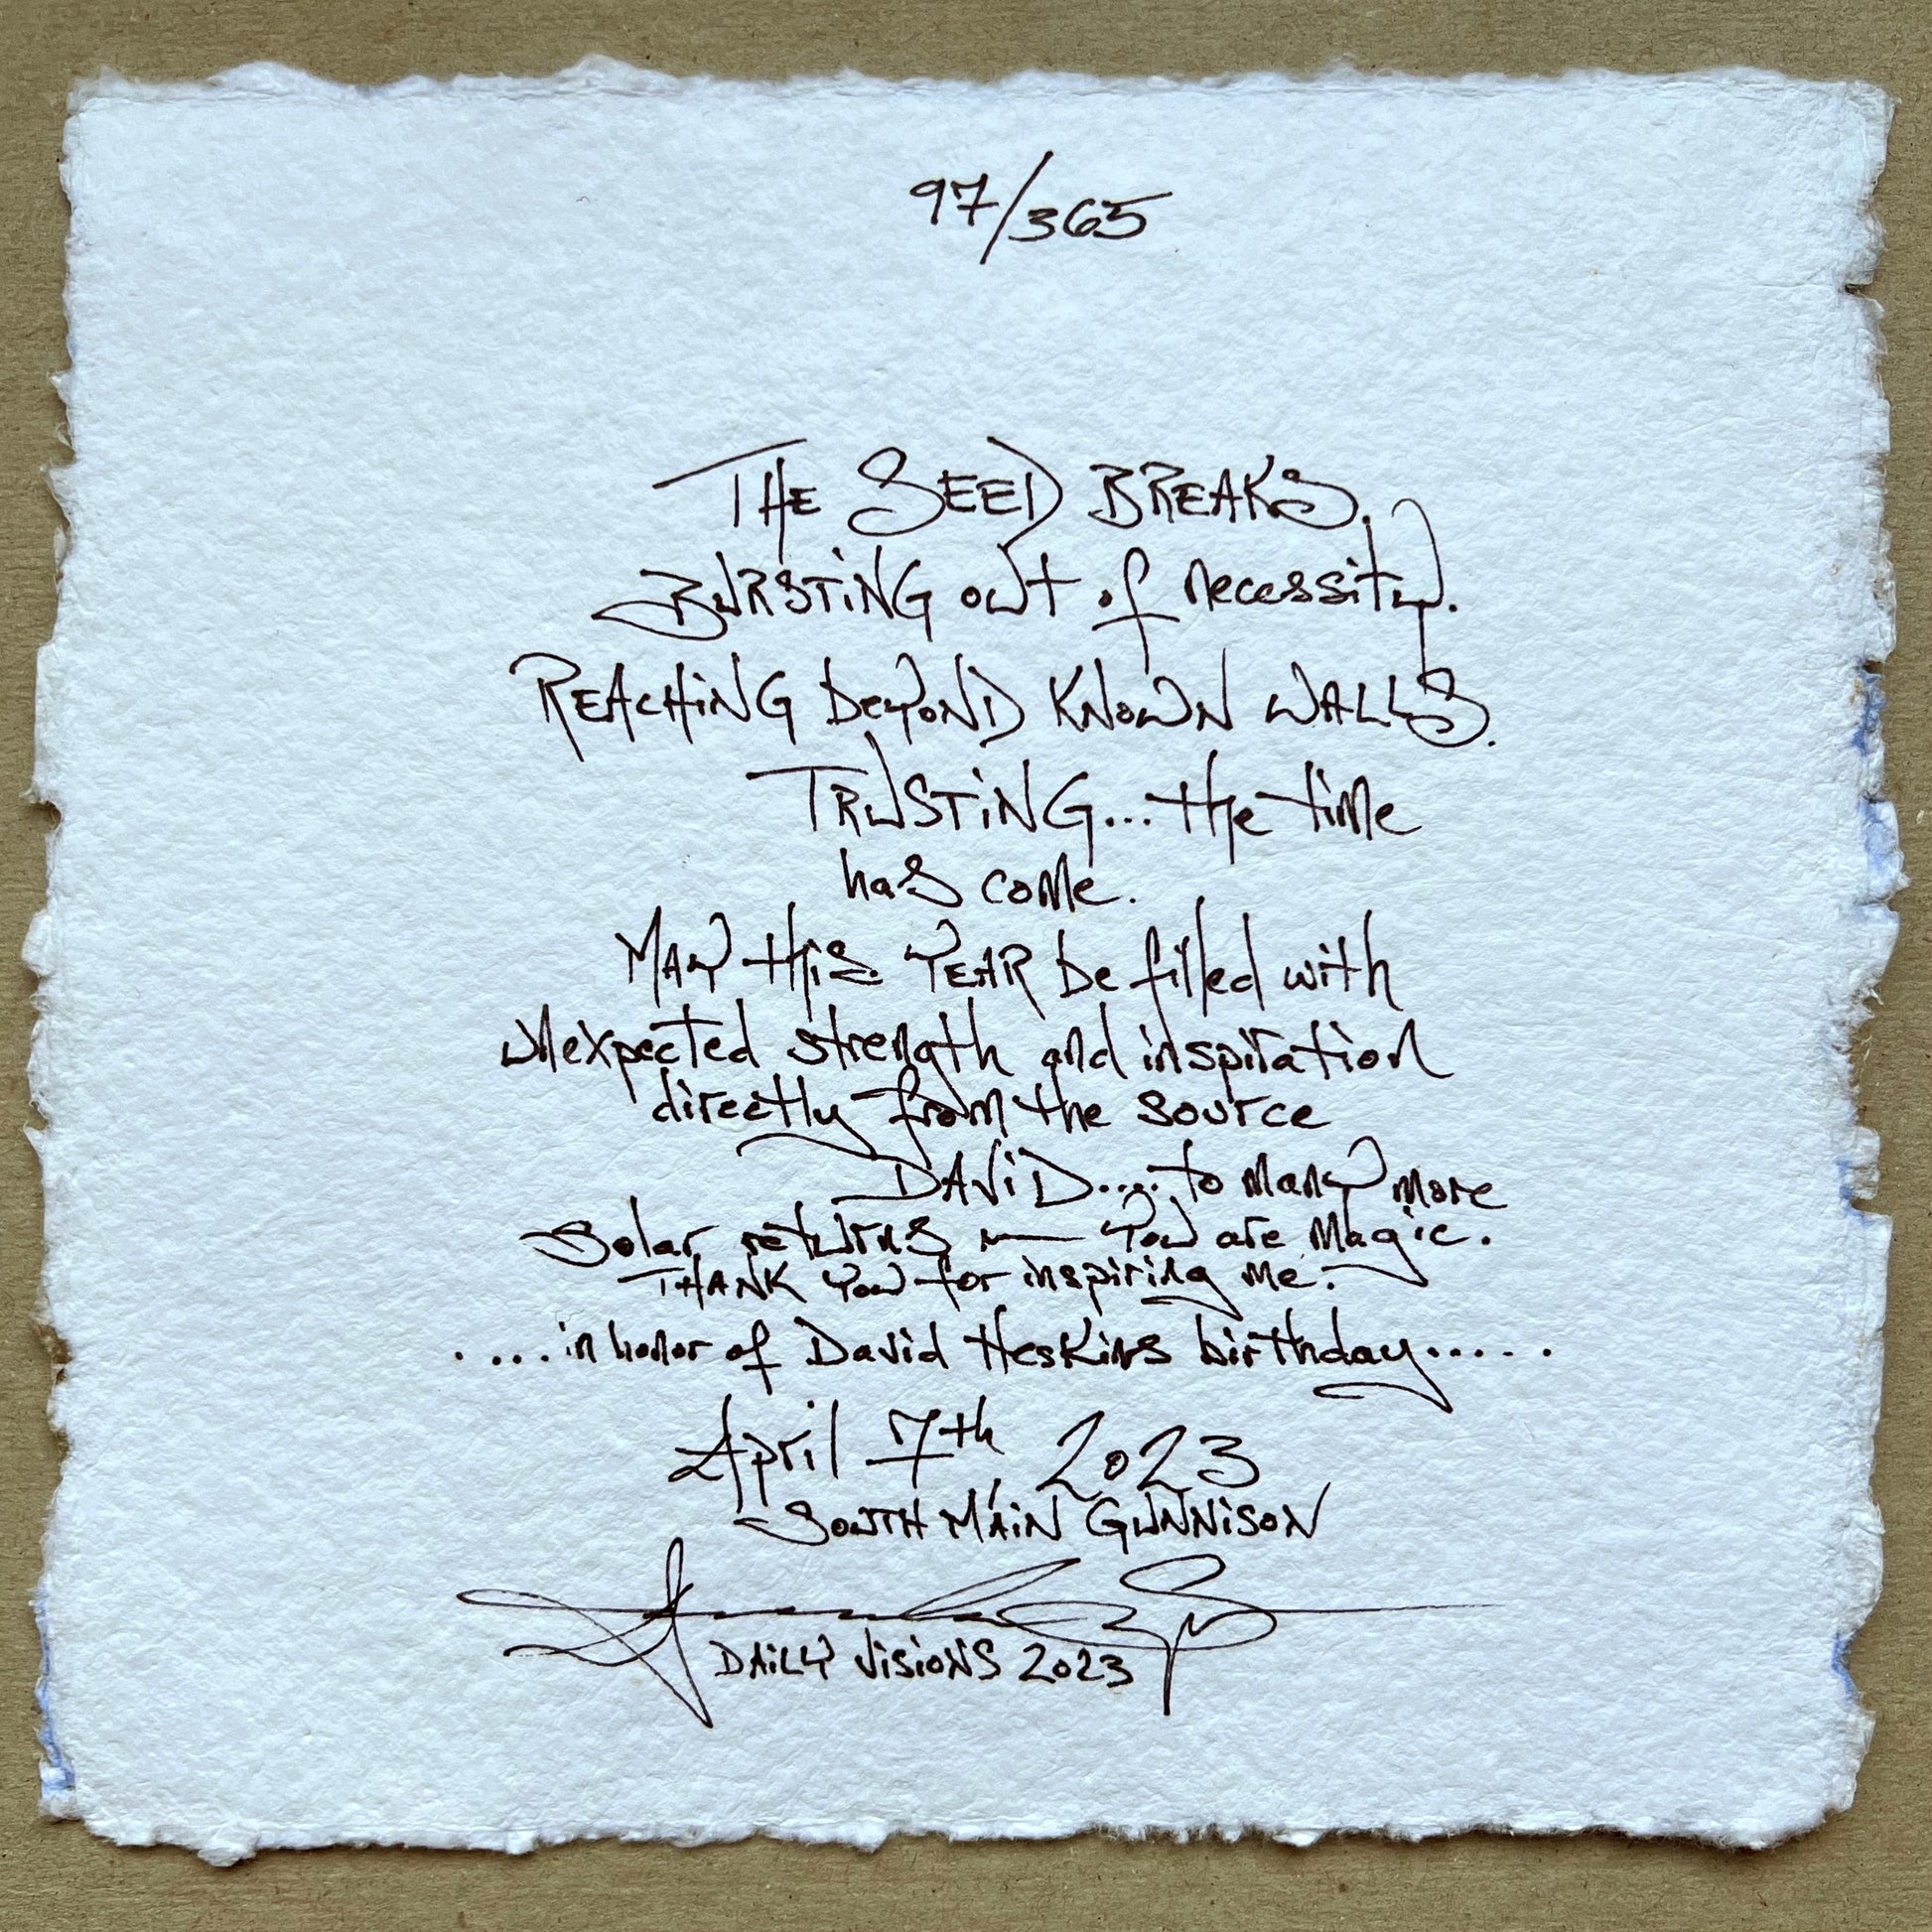 97/365
THE SEED BREAKS.
BURSTiNG out of necessity.
REACHiNG beyoND KNOWN WALLS.
TRUSTiNG...the time
has come.
MAY this YEAR be filled with
unexpected strength and inspiration
directly from the source
DAViD.... to many more
solar returns — You are Magic.
THANK You for inspiring me.
....in honor of David Heskins birthday.....
April 7th, 2023
SOUTH MAiN GUNNiSON
DAiLY ViSiONS 2023